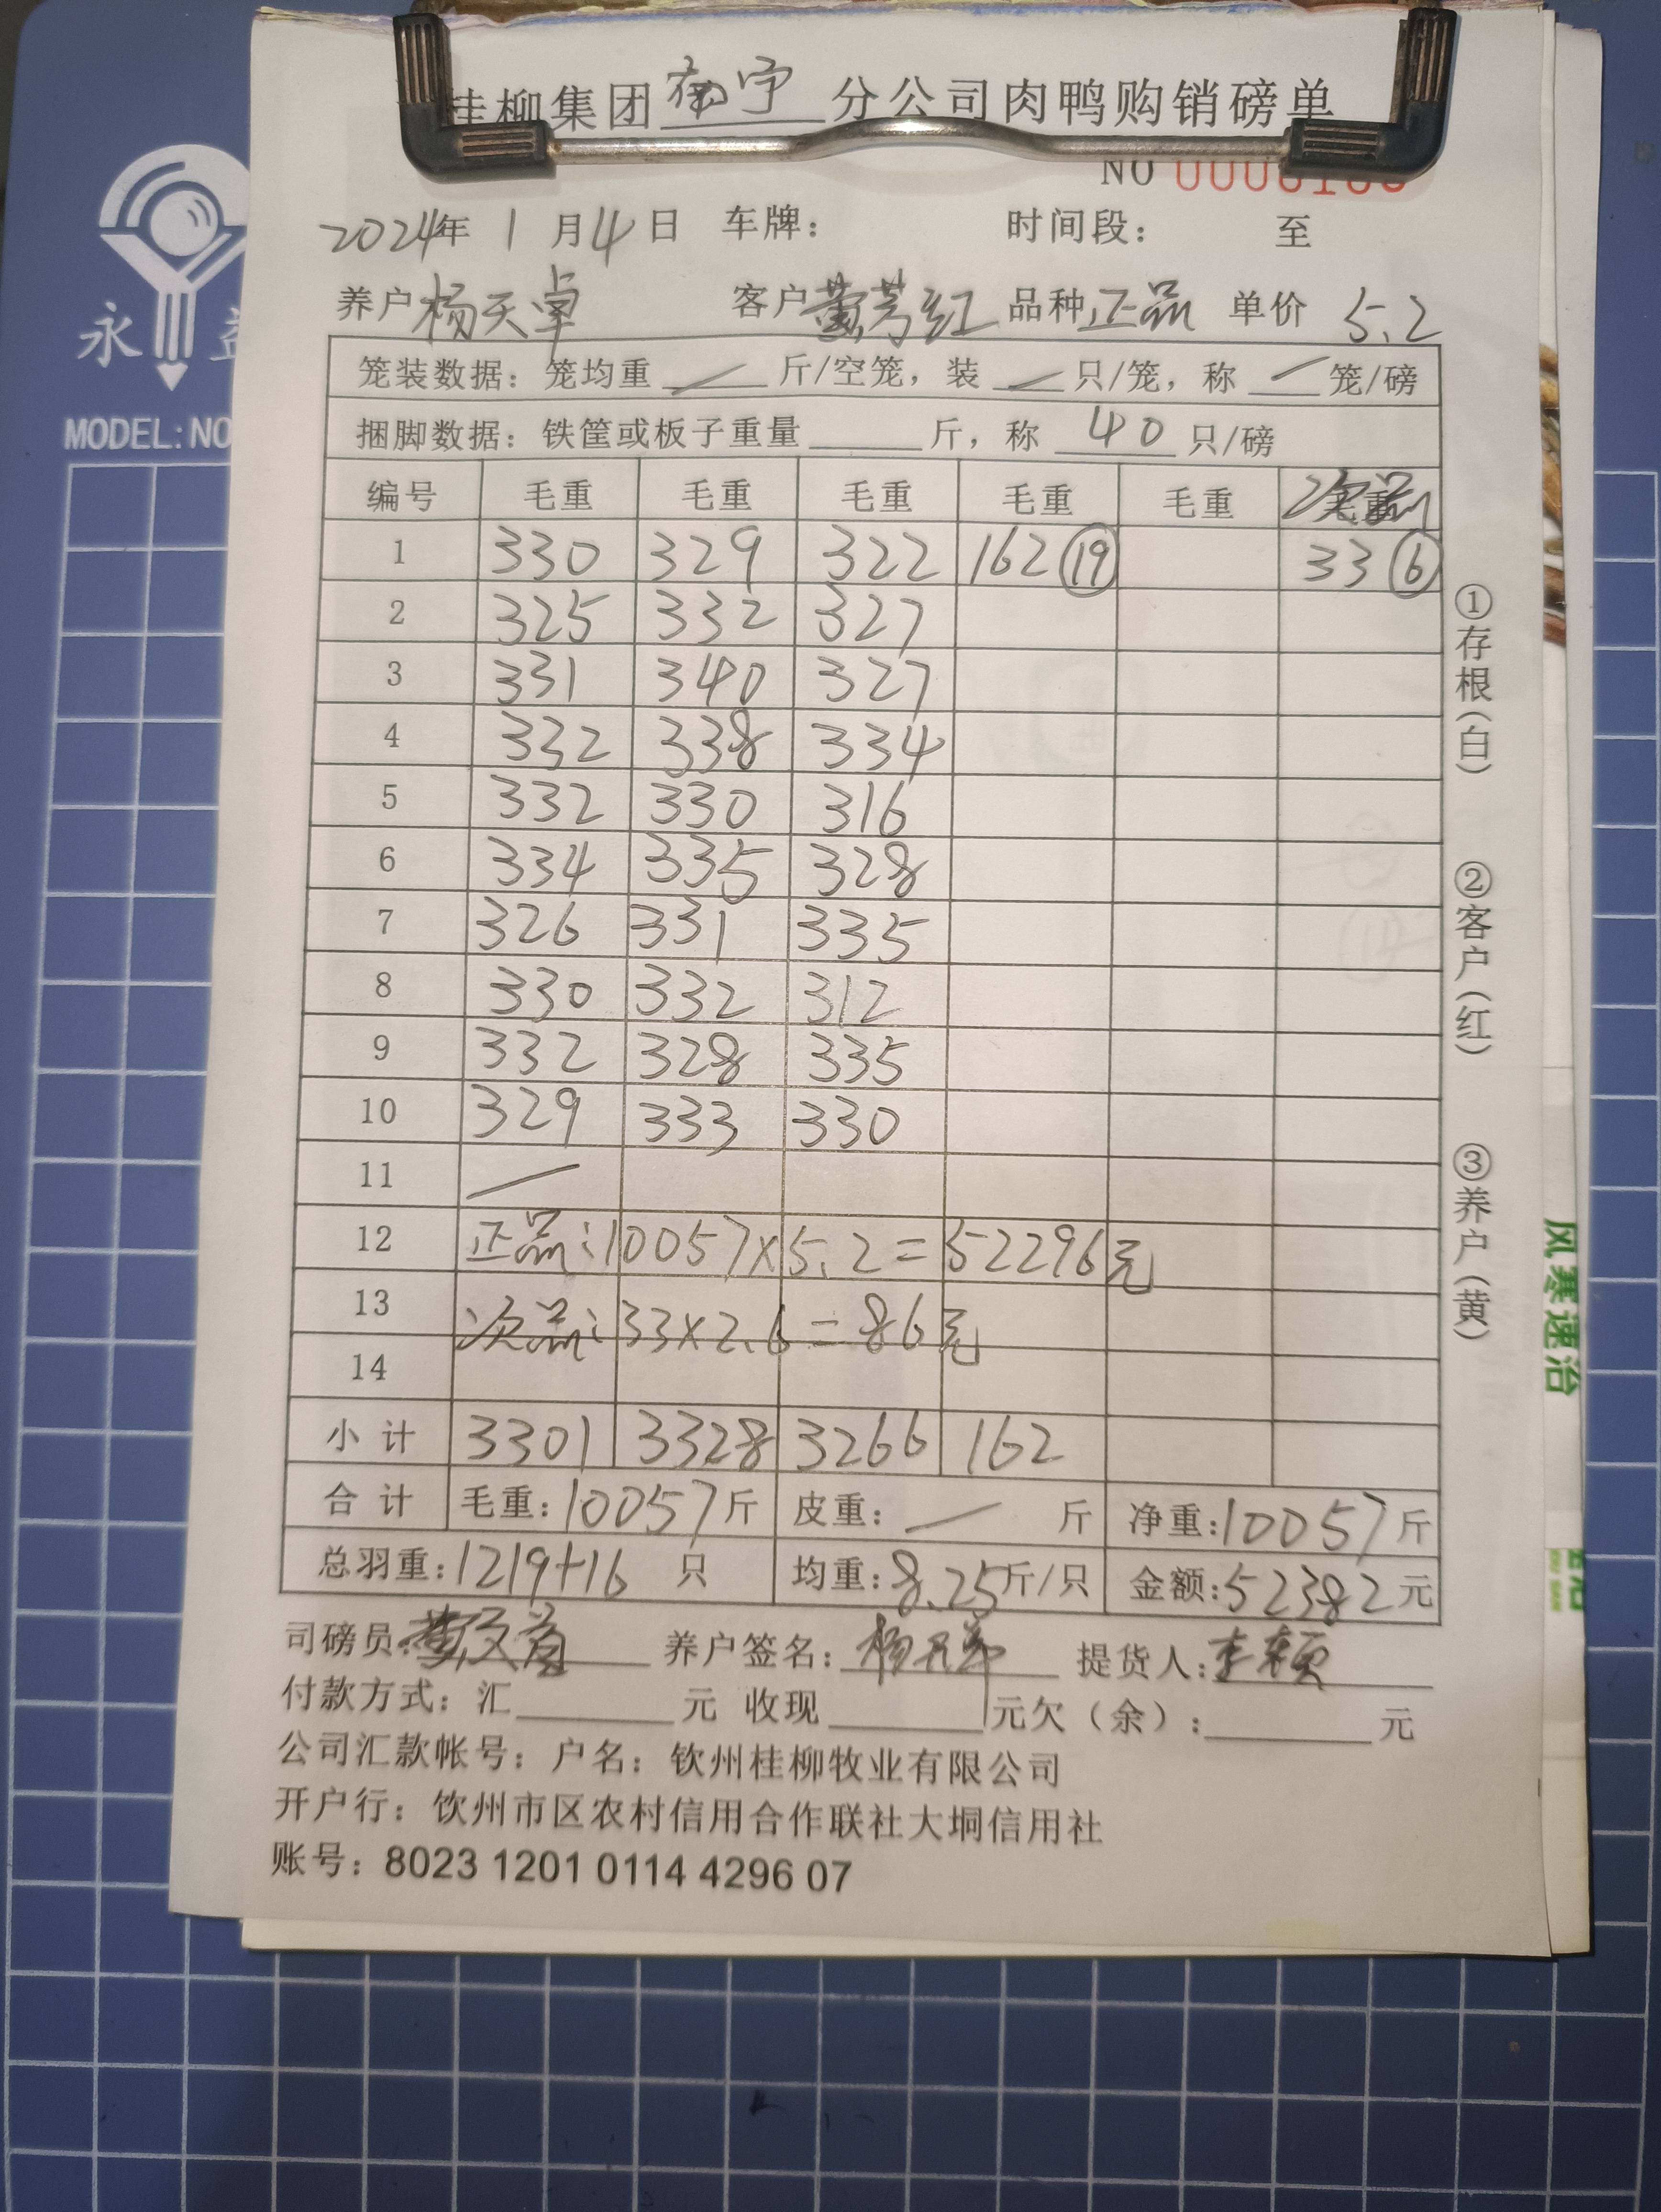 桂柳集团南宁分公司肉鸭购销磅单
NO
2024年 1月4日 车牌： 时间段： 至
养户 杨天卓 客户 黄芳红 品种 正品 单价 5.2
笼装数据：笼均重 / 斤/空笼，装 / 只/笼，称 / 笼/磅
捆脚数据：铁筐或板子重量 斤，称 40 只/磅
编号 毛重 毛重 毛重 毛重 毛重 次品
1 330 329 322 162 ⑲ 33 ⑥
2 325 332 327
3 331 340 327
4 332 338 334
5 332 330 316
6 334 335 328
7 326 331 335
8 330 332 312
9 332 328 335
10 329 333 330
11 /
12 正品：10057×5.2=52296元
13 次品：33×2.6=86元
14
小计 3301 3328 3266 162
合计 毛重：10057斤 皮重：/ 斤 净重：10057斤
总羽重：1219+16 只 均重：8.25斤/只 金额：52382元
司磅员： 养户签名： 提货人：
付款方式：汇 元 收现 元欠（余）： 元
公司汇款帐号：户名：钦州桂柳牧业有限公司
开户行：钦州市区农村信用合作联社大垌信用社
账号：8023 1201 0114 4296 07
①存根（白）
②客户（红）
③养户（黄）
永益
MODEL:NO
风寒速治